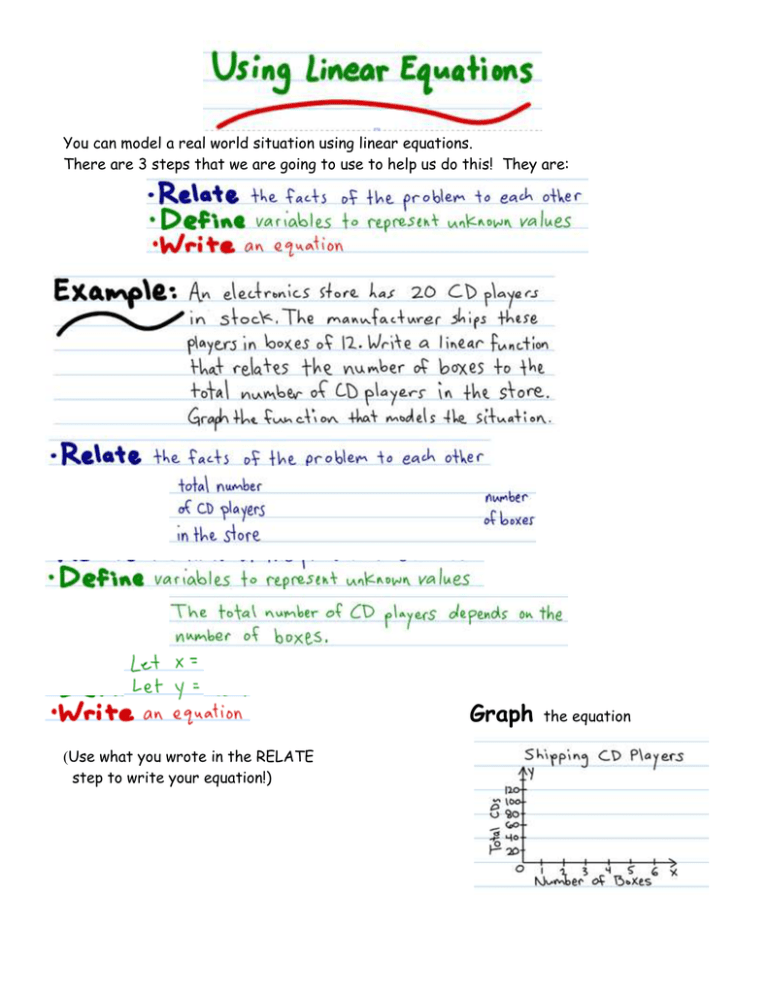 Using Linear Equations
You can model a real world situation using linear equations.
There are 3 steps that we are going to use to help us do this! They are:
•Relate the facts of the problem to each other
•Define variables to represent unknown values
•Write an equation
Example: An electronics store has 20 CD players
in stock. The manufacturer ships these
players in boxes of 12. Write a linear function
that relates the number of boxes to the
total number of CD players in the store.
Graph the function that models the situation.
•Relate the facts of the problem to each other
total number
of CD players
in the store
number
of boxes
•Define variables to represent unknown values
The total number of CD players depends on the
number of boxes.
Let x =
Let y =
•Write an equation
(Use what you wrote in the RELATE
step to write your equation!)
Graph the equation
Shipping CD Players
y
120
100
80
60
40
20
Total CDs
0 1 2 3 4 5 6 x
Number of Boxes